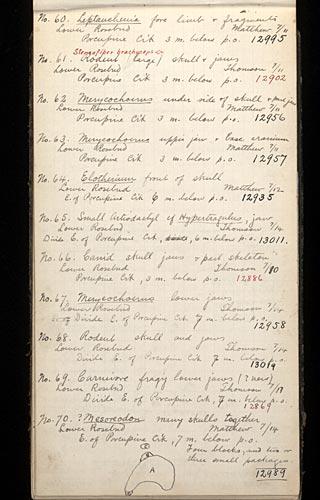 No. 60. Leptauchenia fore limb & fragments
Lower Rosebud Matthew 7/11
Porcupine Crk 3 m. below p.o. 12995
Steneofiber brachyceps
No. 61. Rodent (large) skull & jaws
Lower Rosebud Thomson 7/11
Porcupine Crk 3 m. below p.o. 12902
No. 62 Merycochoerus under side of skull &
Lower Rosebud Matthew 7/11
Porcupine Crk 3 m. below p.o. 12956
No. 63. Merycochoerus upper jaw & base cranium
Lower Rosebud Matthew 7/11
Porcupine Crk 3 m. below p.o. 12957
No. 64. Elotherium front of skull
Lower Rosebud Matthew 7/12
E. of Porcupine Crk 6 m. below p.o. 12935
No. 65. Small Artiodactyl cf Hypertragulus, jaw
Lower Rosebud Thomson 7/14
Divide E. of Porcupine Crk, 6 m. below p.o. 13011.
No. 66. Canid skull jaws & part skeleton
Lower Rosebud Thomson 7/10
Porcupine Crk, 3 m. below p.o. 12886
No. 67. Merycochoerus lower jaws
Lower Rosebud Thomson 7/14
Divide E. of Porcupine Crk 7 m. below p.o.
12958
No. 68. Rodent skull and jaws
Lower Rosebud Thomson 7/14
Divide E. of Porcupine Crk 7 m. below p.o.
13019
No. 69. Carnivore frag lower jaws
Lower Rosebud Thomson 7/13
Divide E. of Porcupine Crk, 7 m. below p.o.
12869
No. 70. ? Mesoreodon many skulls together
Lower Rosebud Matthew 7/14
E. of Porcupine Crk, 7 m. below p.o.
Four blocks, and two or
three small packages
A
12989